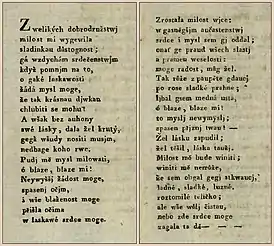 Z welikých dobrodružstwj
milost mi wygewila
sladinkau důstognost;
gá wzdychám srdečenstwjm
když pomnjm na to,
o gaké laskawosti
žádá mysl moge,
že tak krásnau djwkau
chlubiti se mohu!
A wšak bez auhony
swé lásky, dala žel krutý,
gegž wšudy nositi musjm,
nedbage koho rwe;
Pudj mě mysl milowati,
ó blaze, blaze mi!
Neywyšij žádost moge,
spasenj očjm,
i wše blaženost moge
přišla očima
w laskawé srdce moge.
Zrostała milost wjce;
w gasněgšjm aučastenstwj
srdce i mysl sem gj oddal;
onať ge praud wšech slastj
a pramen weselosti;
moge radost, můg žel.
Tak růže z paupěte gdaucý
po rose sladké prahne;
ljbal gsem medná usta,
ó blaze, blaze mi!
to myslj newymyslj;
spasen přjzni twau! —
Žel lásku zapudil;
žel těšil, lásku taužj.
Milost mě bude winiti;
winiti mě nemůže,
že sem obral gegj stkwaucý,
ladné, sladké, lozné,
roztomilé twličko;
ale wše wůlj čistau,
nebo zde srdce moge
uagala ta dá — — —